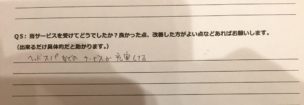 Q5：当サービスを受けてどうでしたか？良かった点、改善した方がよい点などあればお願いします。
（出来るだけ具体的だと助かります。）
ヘッドスパなどの サービスが充実してる